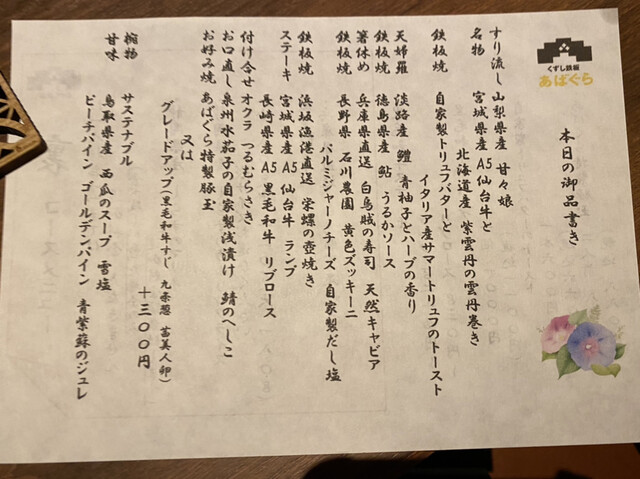 くずし鉄板
あばぐら
本日の御品書き
すり流し 山梨県産 甘々娘
名物 宮城県産 A5仙台牛と
北海道産 紫雲丹の雲丹巻き
鉄板焼 自家製トリュフバターと
イタリア産サマートリュフのトースト
天婦羅 淡路産 鱧 青柚子とハーブの香り
鉄板焼 徳島県産 鮎 うるかソース
箸休め 兵庫県直送 白烏賊の寿司 天然キャビア
鉄板焼 長野県 石川農園 黄色ズッキーニ
パルミジャーノチーズ 自家製だし塩
鉄板焼 浜坂漁港直送 栄螺の壺焼き
ステーキ 宮城県産 A5仙台牛 ランプ
長崎県産 A5黒毛和牛 リブロース
付け合せ オクラ つるむらさき
お口直し 泉州水茄子の自家製浅漬け 鯖のへしこ
お好み焼 あばぐら特製豚玉
又は
グレードアップ(黒毛和牛すじ 九条葱 苗美人卵)
+300円
椀物 サステナブル
甘味 鳥取県産 西瓜のスープ 雪塩
ピーチパイン ゴールデンパイン 青紫蘇のジュレ